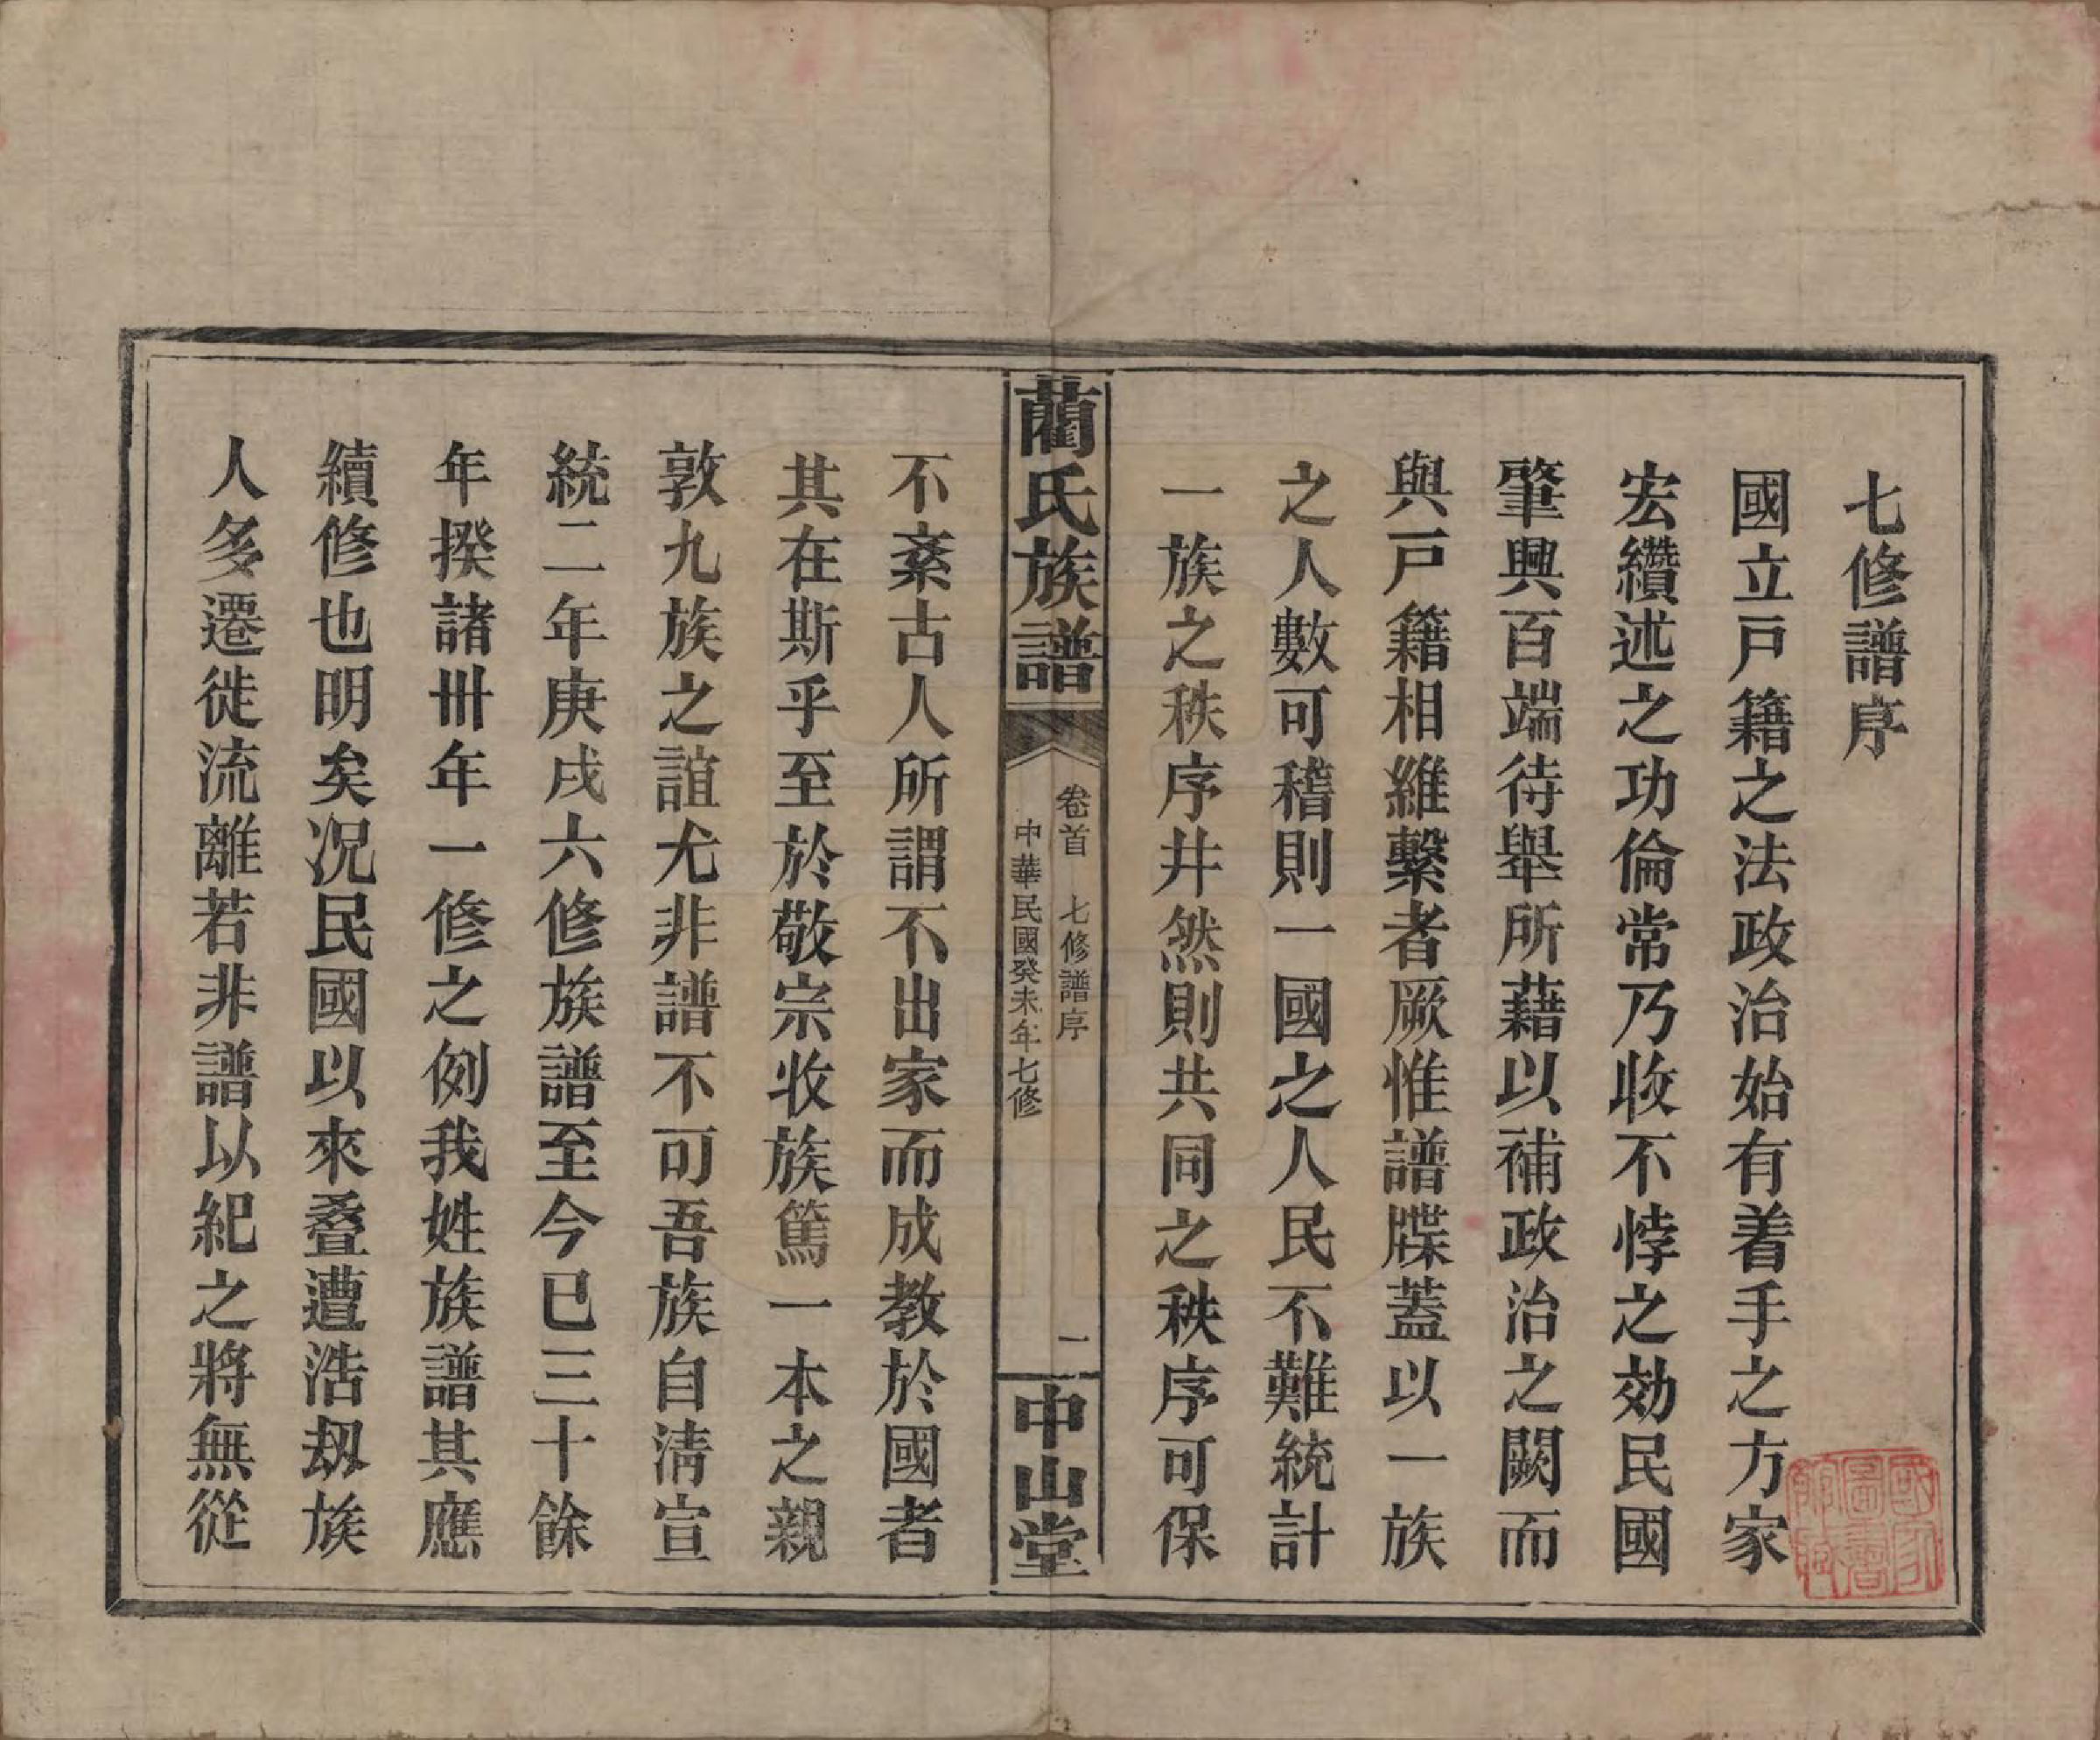 七修譜序
國立戸籍之法政治始有着手之方家
宏纘述之功倫常乃收不悖之効民國
肇興百端待舉所藉以補政治之闕而
與戸籍相維繫者厥惟譜牒蓋以一族
之人數可稽則一國之人民不難統計
一族之秩序井然則共同之秩序可保
藺氏族譜
卷首 七修譜序 一
中華民國癸未年七修
中山堂
不紊古人所謂不出家而成教於國者
其在斯乎至於敬宗收族篤一本之親
敦九族之誼尤非譜不可吾族自淸宣
統二年庚戌六修族譜至今已三十餘
年揆諸卅年一修之例我姓族譜其應
續修也明矣况民國以來叠遭浩刼族
人多遷徙流離若非譜以紀之將無從
國家圖書館藏